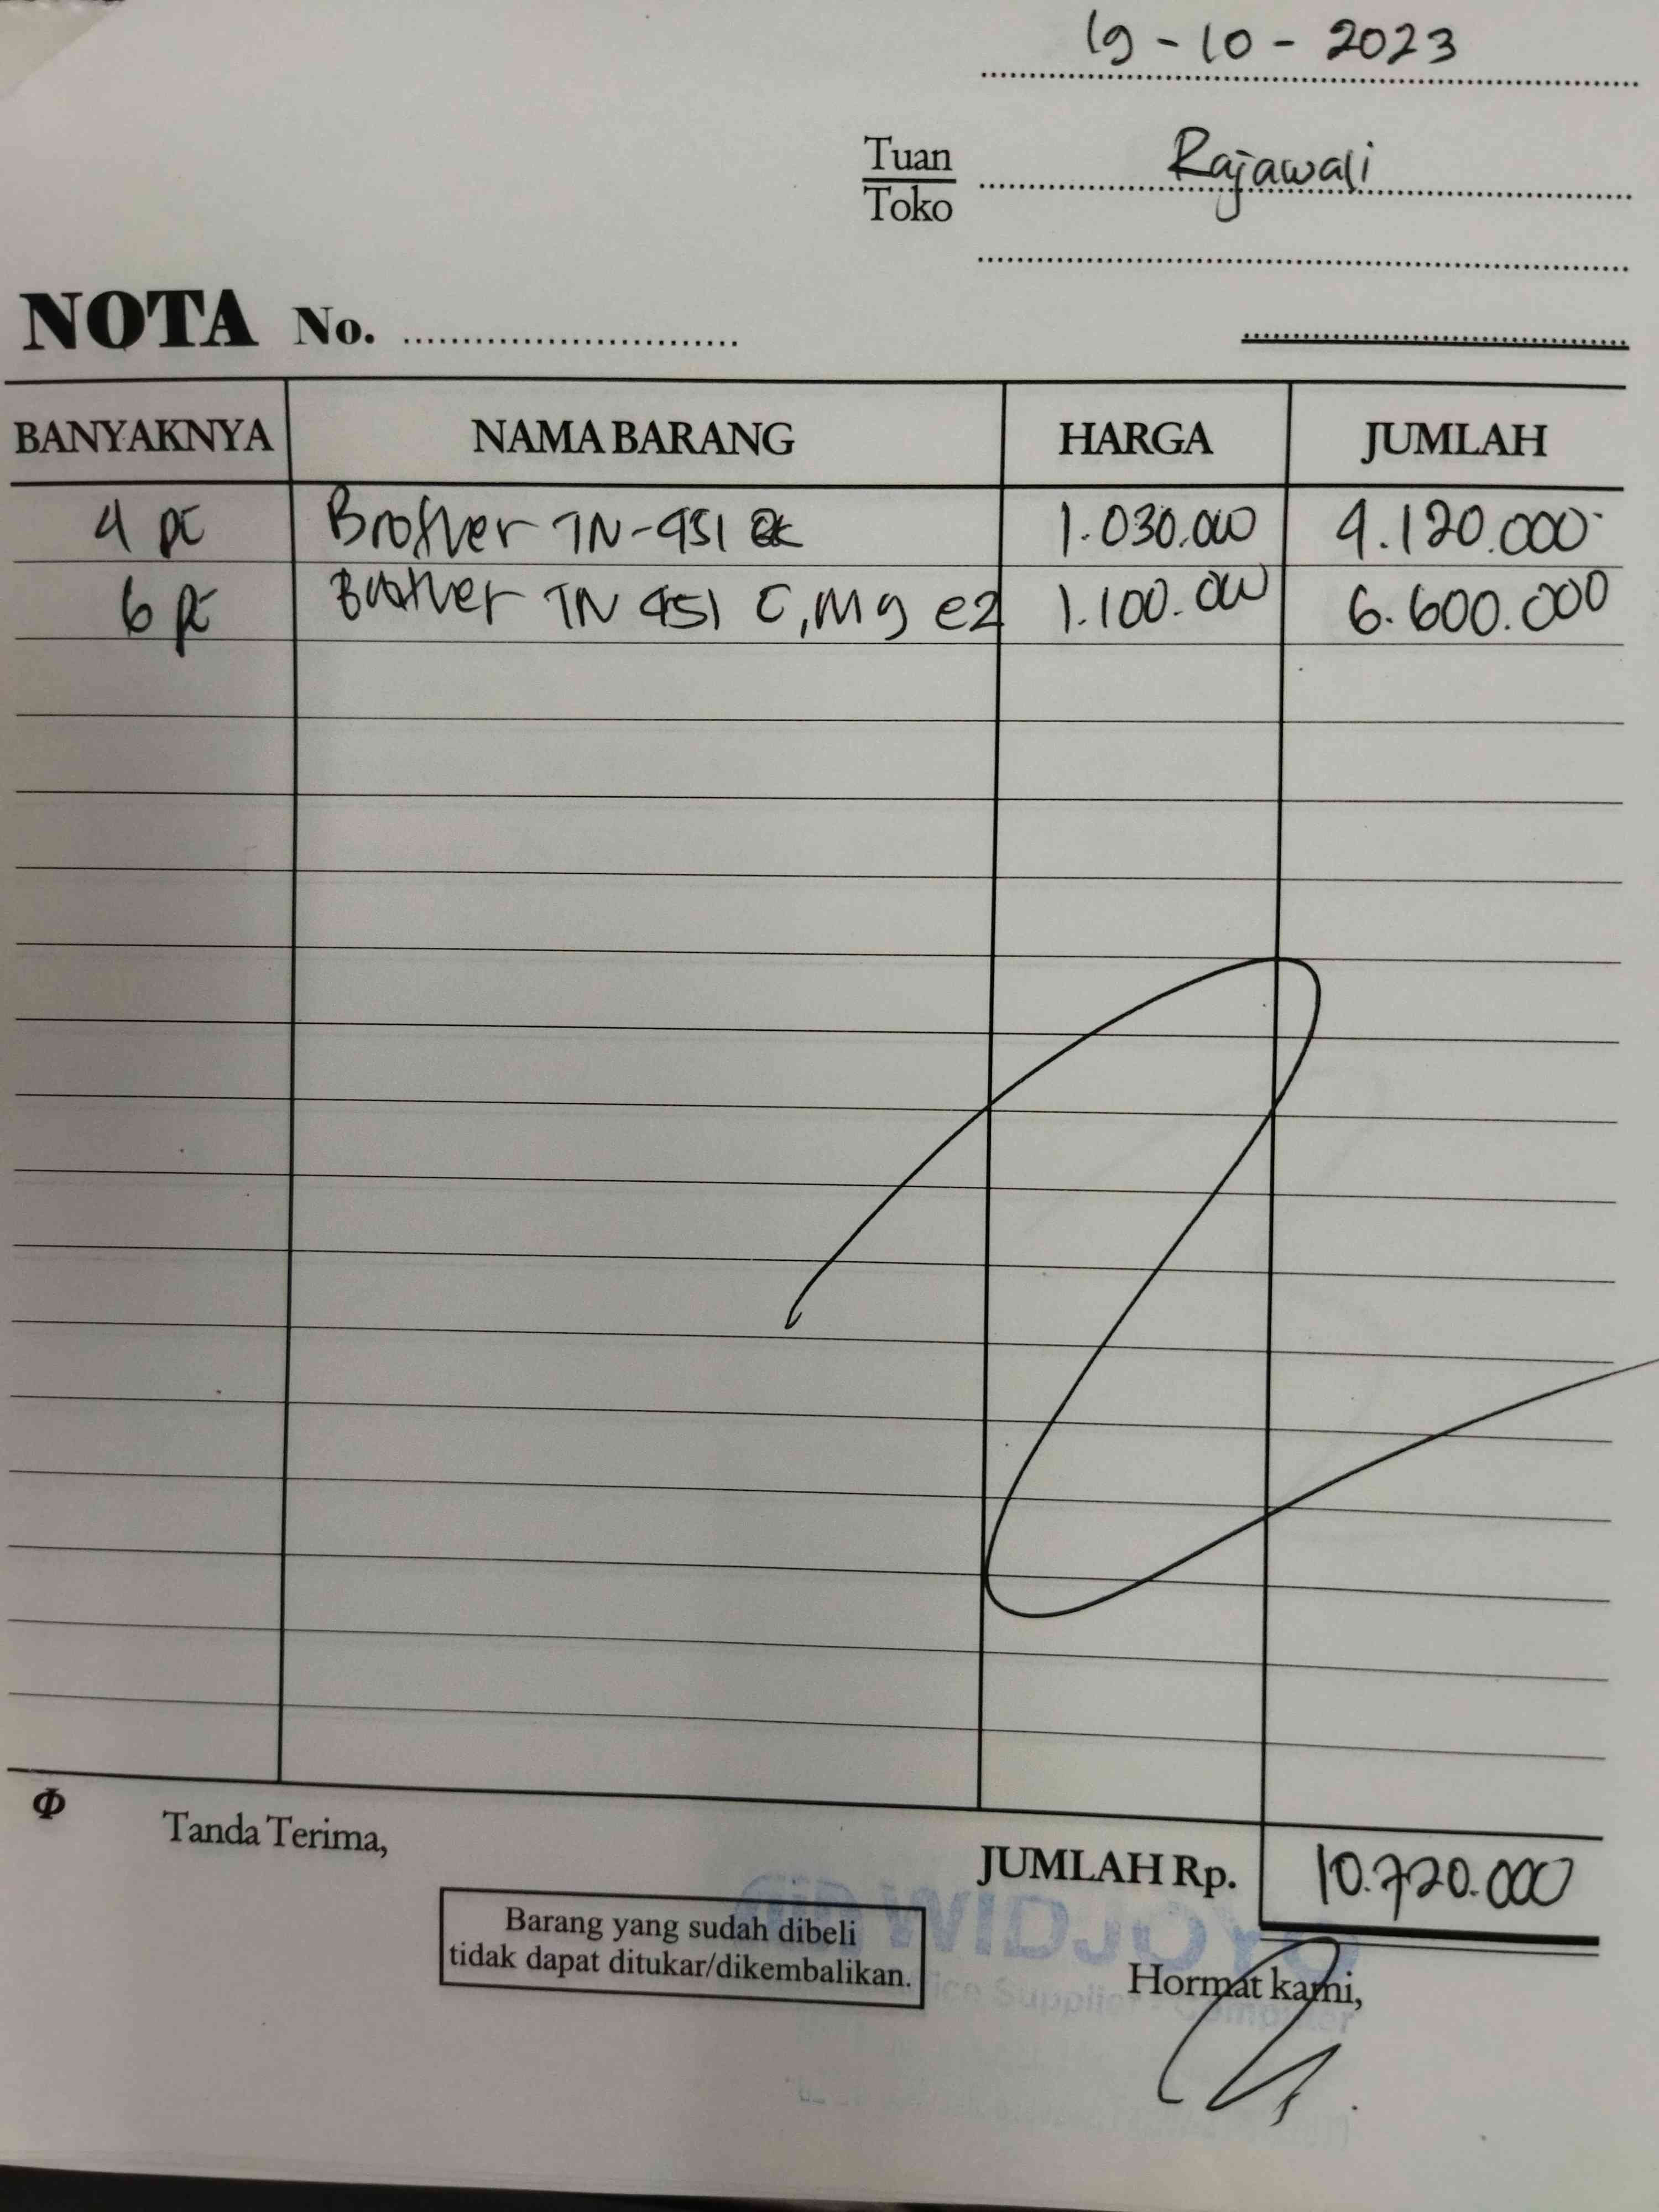 19-10-2023
Tuan
Toko
Rajawali
NOTA No.
BANYAKNYA NAMA BARANG HARGA JUMLAH
4 pc Brother TN-451 BK 1.030.000 4.120.000
6 pc Brother TN 451 C,M,y @2 1.100.000 6.600.000
Tanda Terima,
JUMLAH Rp. 10.720.000
Barang yang sudah dibeli
tidak dapat ditukar/dikembalikan.
WIDJOYO
Office Supplier - Computer
Hormat kami,